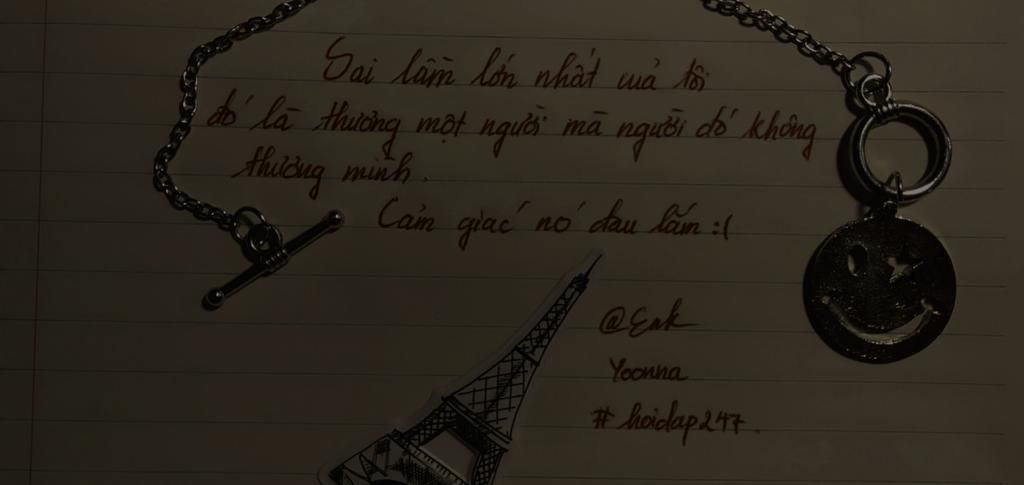 Sai lầm lớn nhất của tôi
đó là thương một người mà người đó không
thương mình.
Cảm giác nó đau lắm :(
@Enk
Yoonna
#hoidap247.